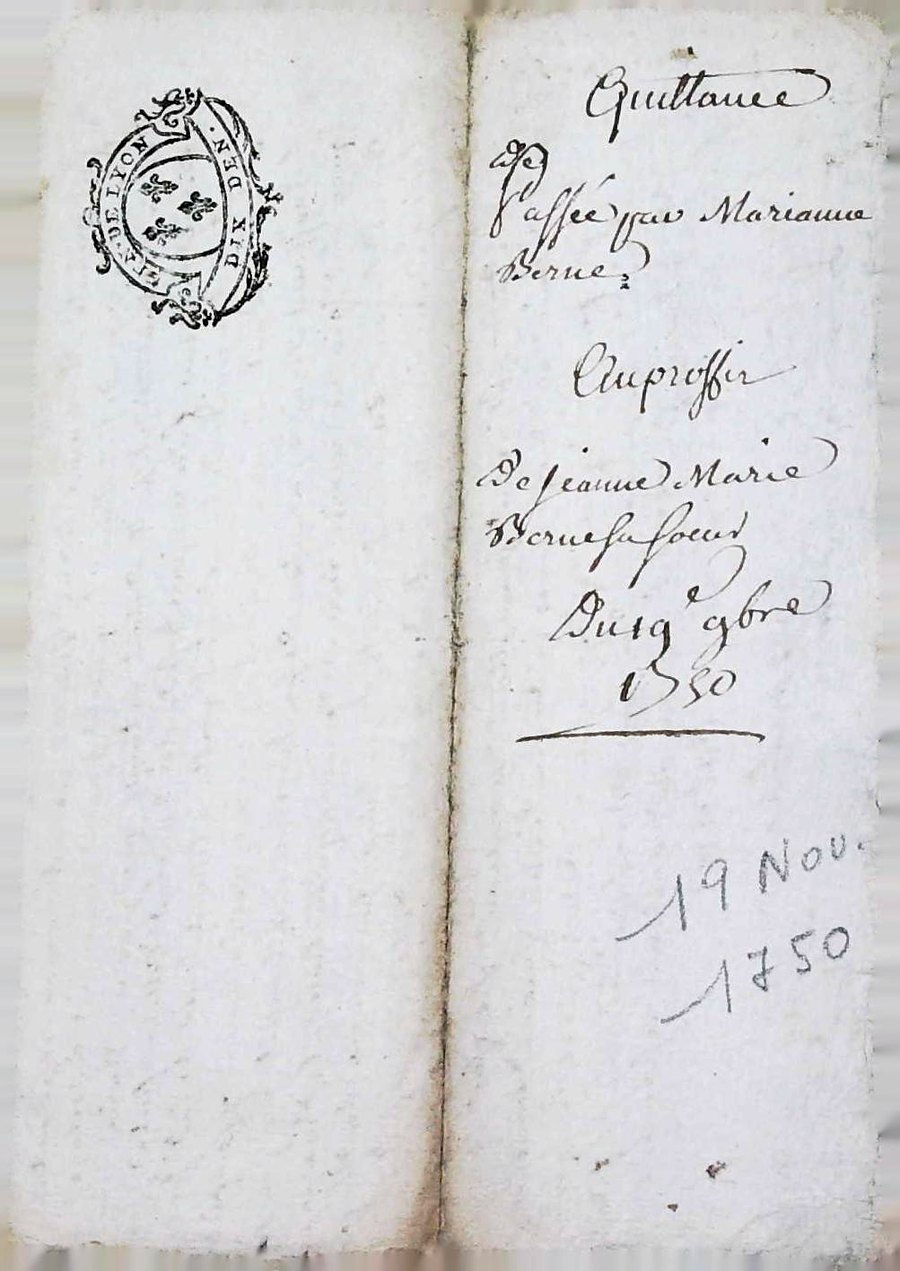 GEN. DE LYON
DIX DEN.
Quittance
de
passée par Marianne
Berne
Auproffit
De jeanne Marie
Berne sa soeur
Du 19e 9bre
1750
19 Nov.
1750